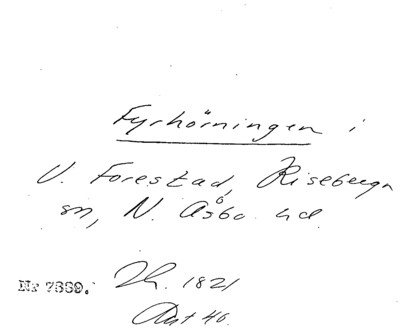 Fyrhörningen i
V. Forestad, Riseberga
sn, N. Åsbo hd.
Nr 7889. Th. 1821
Ant 46.